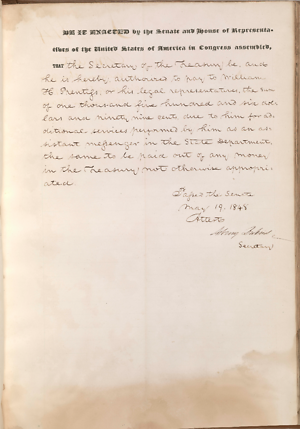 BE IT ENACTED by the Senate and House of Representa-
tives of the United States of America in Congress assembled,
THAT the Secretary of the Treasury be, and
he is hereby, authorized to pay to William
H Prentiss, or his legal representatives, the sum
of one thousand five hundred and six dol
lars and ninety nine cents due to him for ad
ditional services performed by him as an as
sistant messenger in the State Department,
the same to be paid out of any money
in the Treasury not otherwise appropri
ated.
Passed the Senate
May 19, 1848
Attest
Secretary